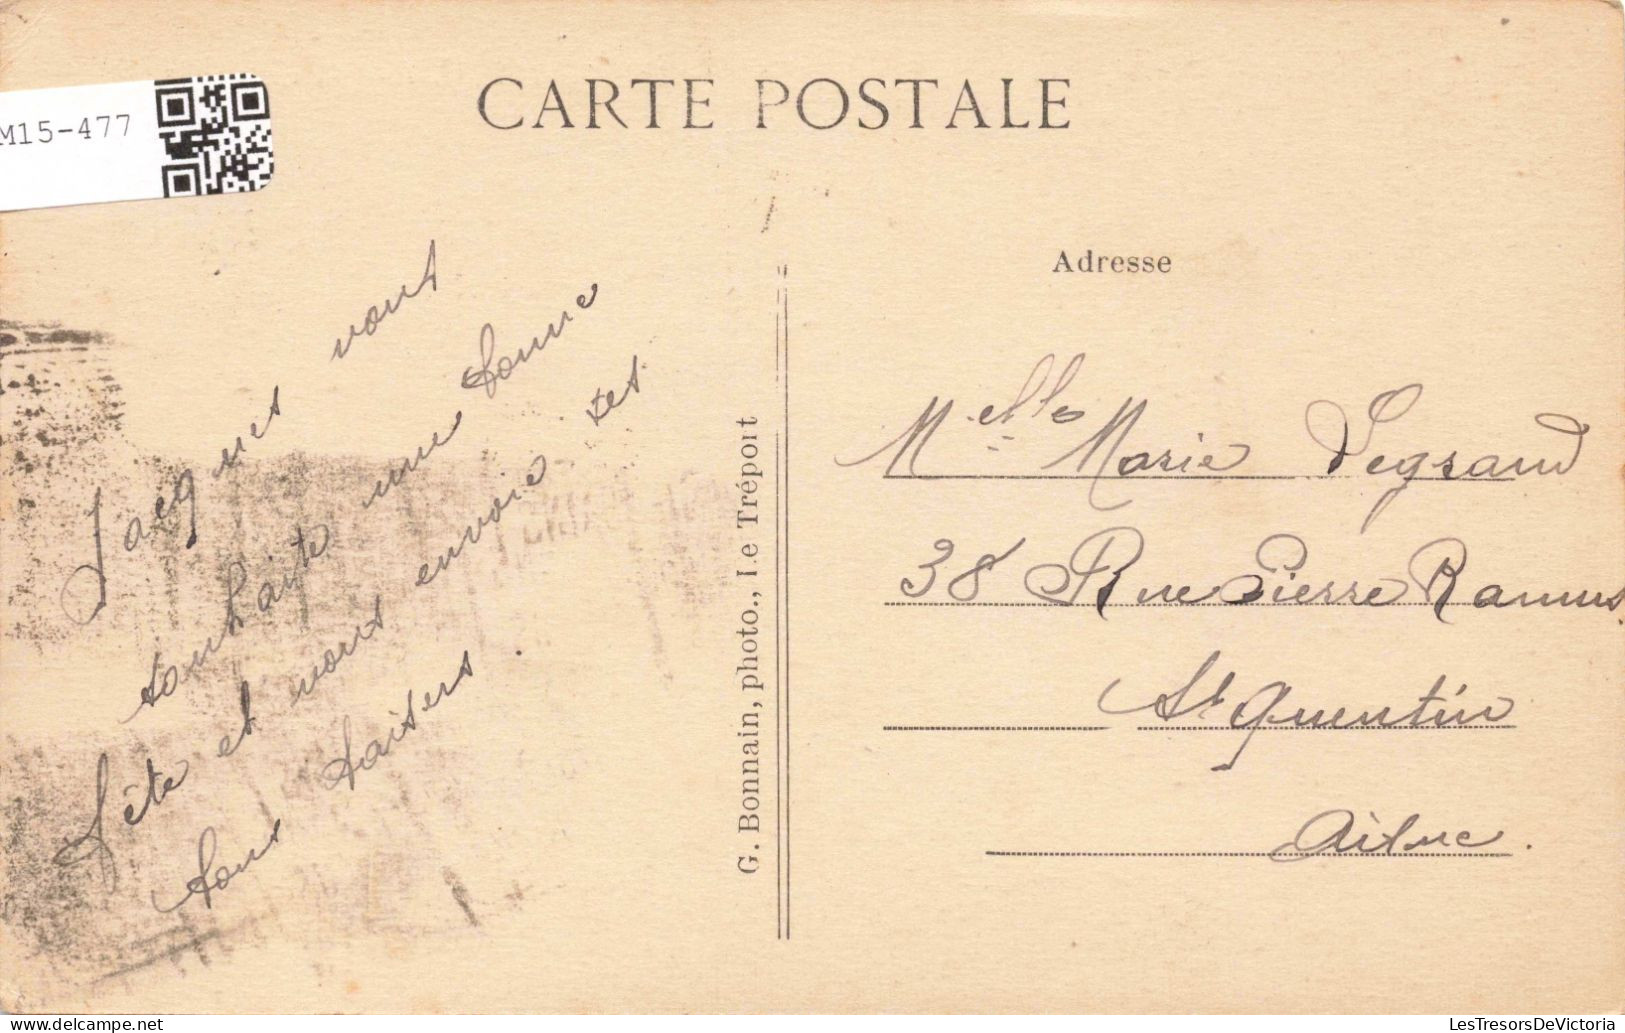 CARTE POSTALE
M15-477
Adresse
Jacques vous
souhaite une bonne
fête et vous envoie ses
bons baisers.
G. Bonnain, photo., Le Tréport
Melle Marie Legrand
38 Rue Pierre Ramus
St Quentin
Aisne.
LesTresorsDeVictoria